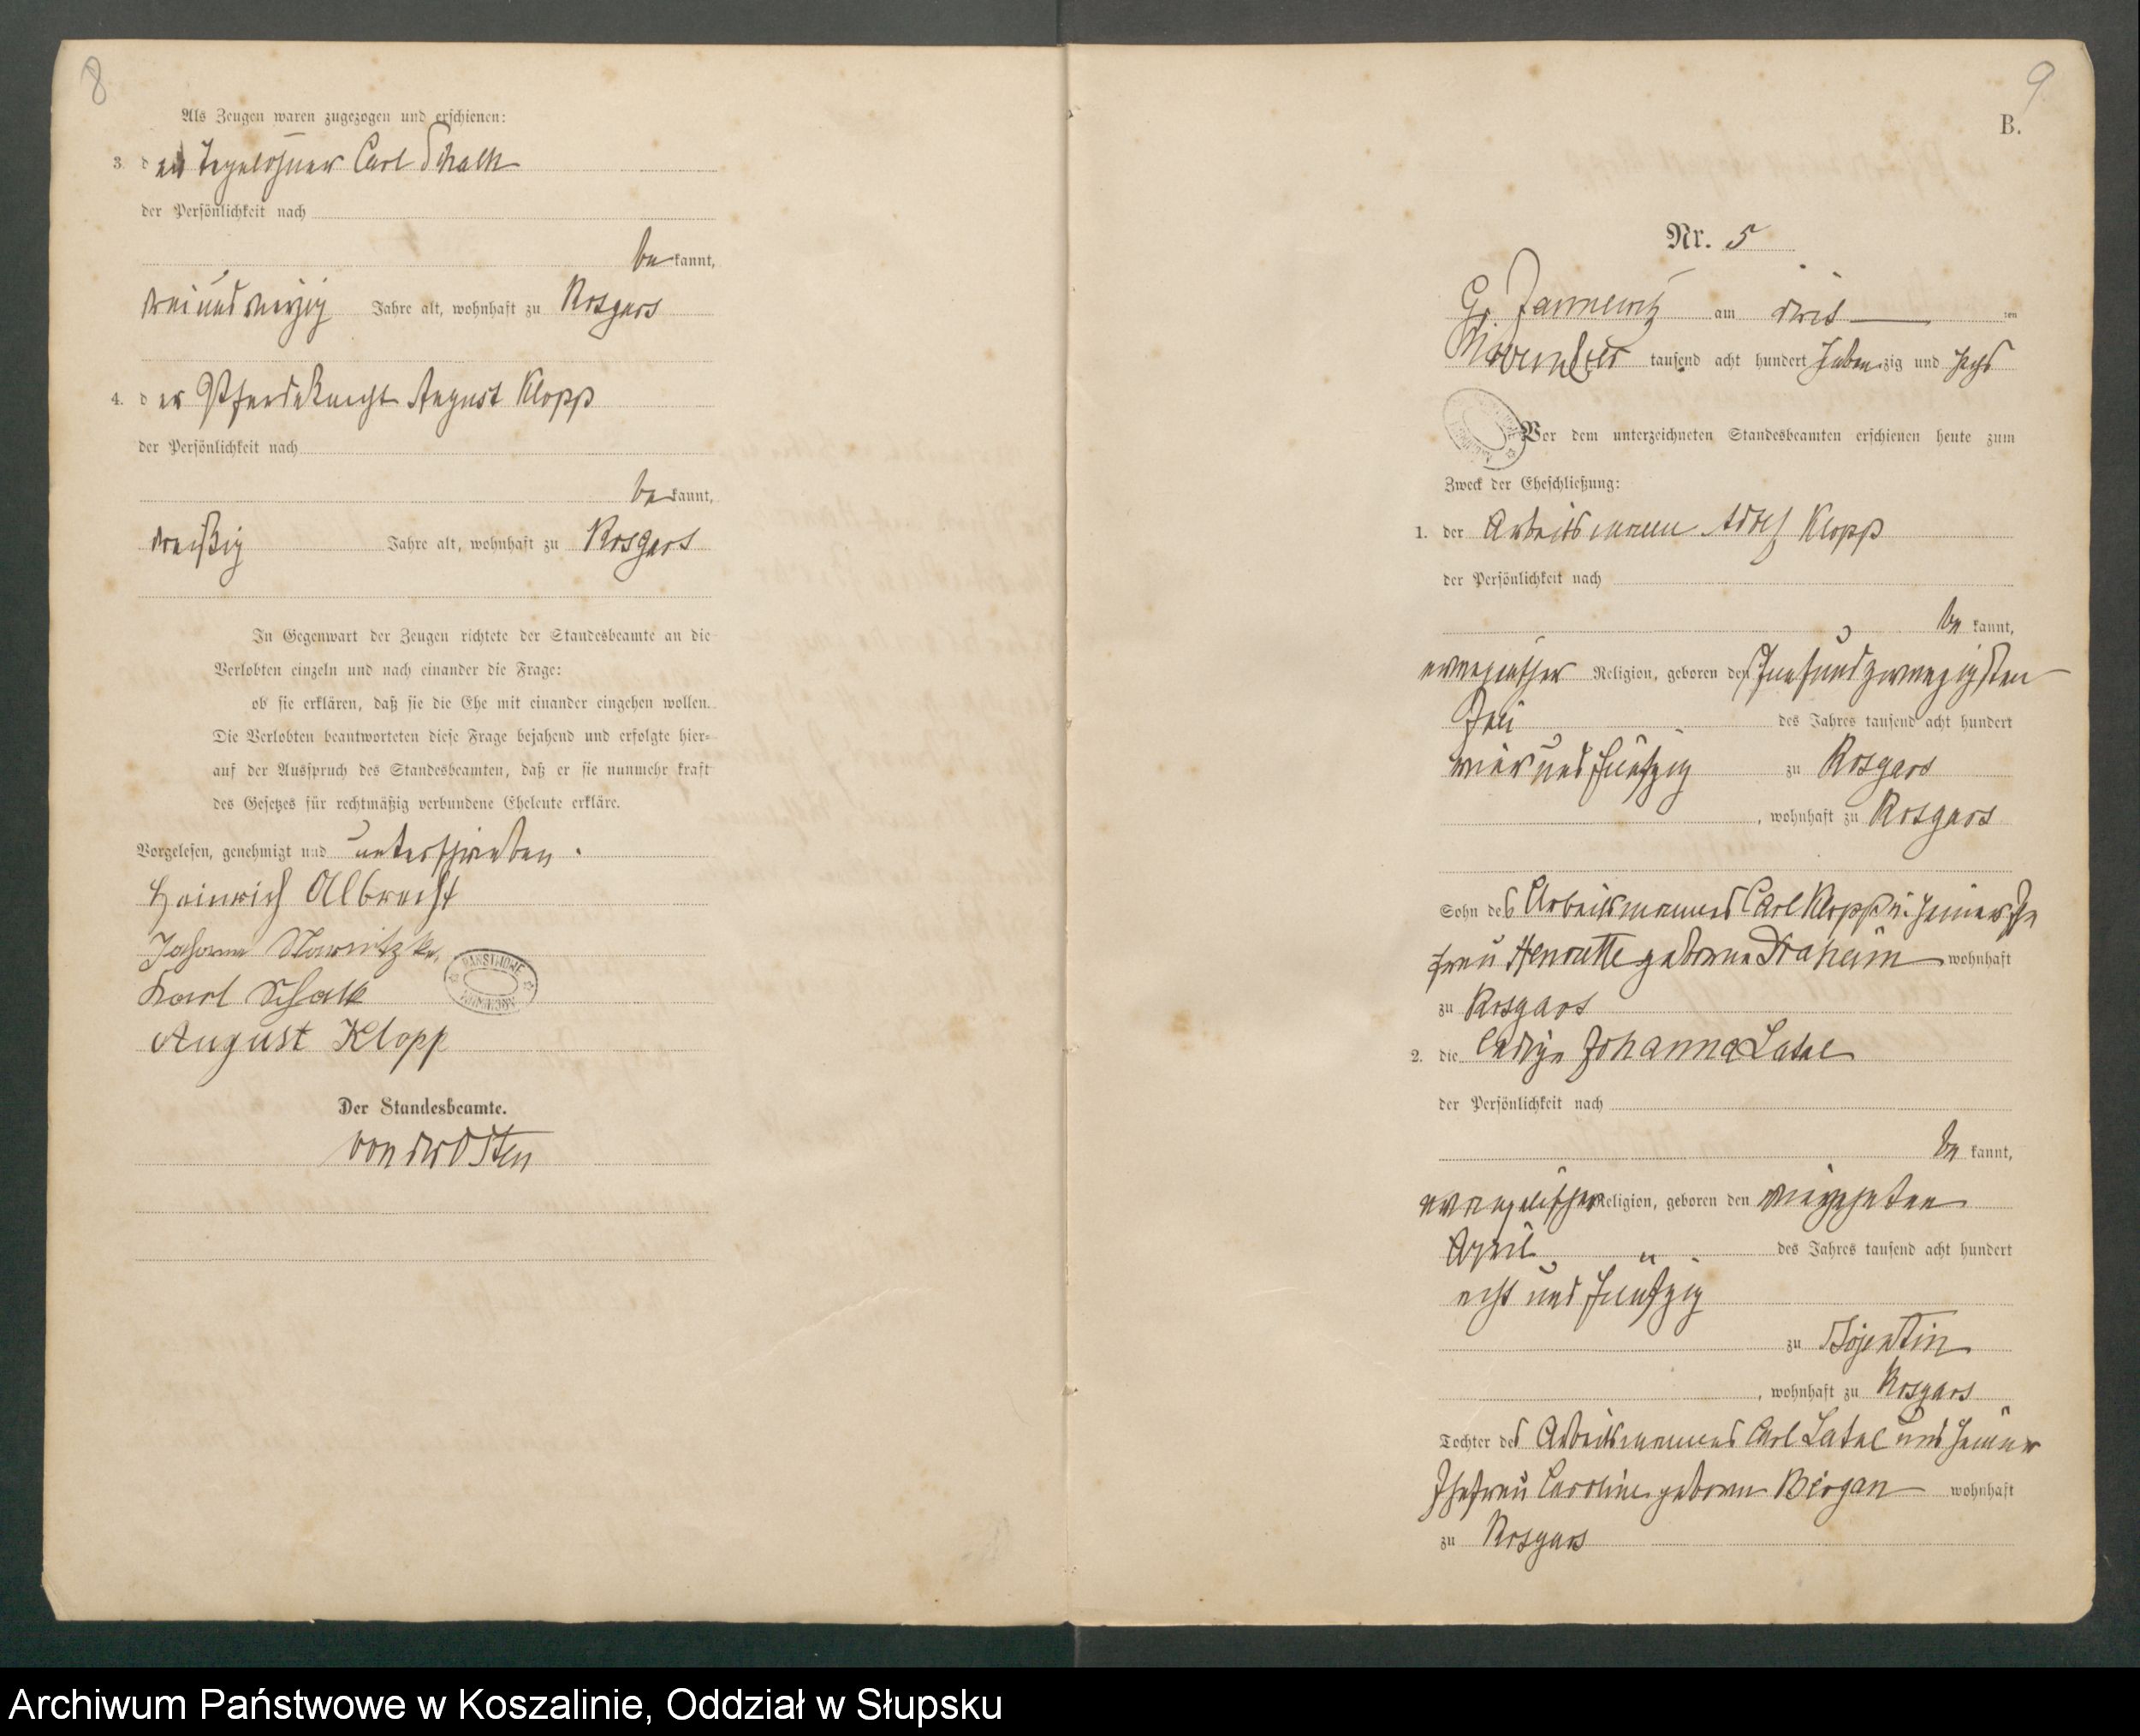 8
Als Zeugen waren zugezogen und erschienen:
3. der Tagelöhner Carl Schalk
der Persönlichkeit nach
be kannt,
dreiundvierzig Jahre alt, wohnhaft zu Rosgars
4. der Pferdeknecht August Klopp
der Persönlichkeit nach
be kannt,
dreißig Jahre alt, wohnhaft zu Rosgars
In Gegenwart der Zeugen richtete der Standesbeamte an die
Verlobten einzeln und nach einander die Frage:
ob sie erklären, daß sie die Ehe mit einander eingehen wollen.
Die Verlobten beantworteten diese Frage bejahend und erfolgte hier-
auf der Ausspruch des Standesbeamten, daß er sie nunmehr kraft
des Gesetzes für rechtmäßig verbundene Eheleute erkläre.
Vorgelesen, genehmigt und unterschrieben.
Heinrich Albrecht
Karl Schalk
August Klopp
Der Standesbeamte.
von der Osten
9
B.
Nr. 5
Gr. Jannewitz am drit ten
November tausend acht hundert sieben zig und sechs
Vor dem unterzeichneten Standesbeamten erschienen heute zum
Zweck der Eheschließung:
1. der Arbeitsmann Adolf Klopp
der Persönlichkeit nach
be kannt,
evangelischer Religion, geboren den fünfundzwanzigsten
Juli des Jahres tausend acht hundert
vier und fünfzig zu Rosgars
, wohnhaft zu Rosgars
Sohn des Arbeitsmannes Carl Klopp u. seiner Ehe
frau Henriette geborne Draheim wohnhaft
zu Rosgars
2. die ledige Johanna Latal
der Persönlichkeit nach
be kannt,
evangelischer Religion, geboren den vierzehnten
April des Jahres tausend acht hundert
acht und fünfzig
zu Bojentin
, wohnhaft zu Rosgars
Tochter des Arbeitsmannes Carl Latal und seiner
Ehefrau Caroline geborne Birgan wohnhaft
zu Rosgars
Archiwum Państwowe w Koszalinie, Oddział w Słupsku